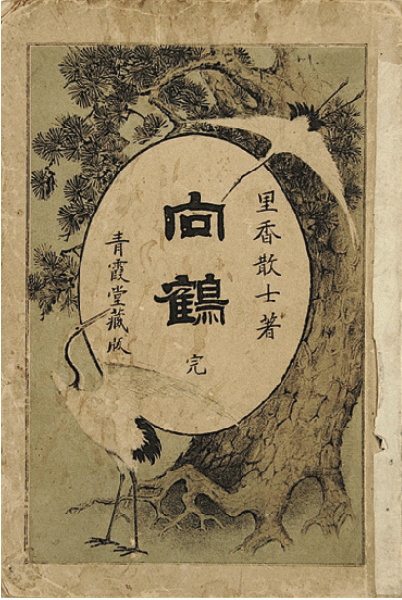 里香散士著
向鶴
完
青霞堂藏版